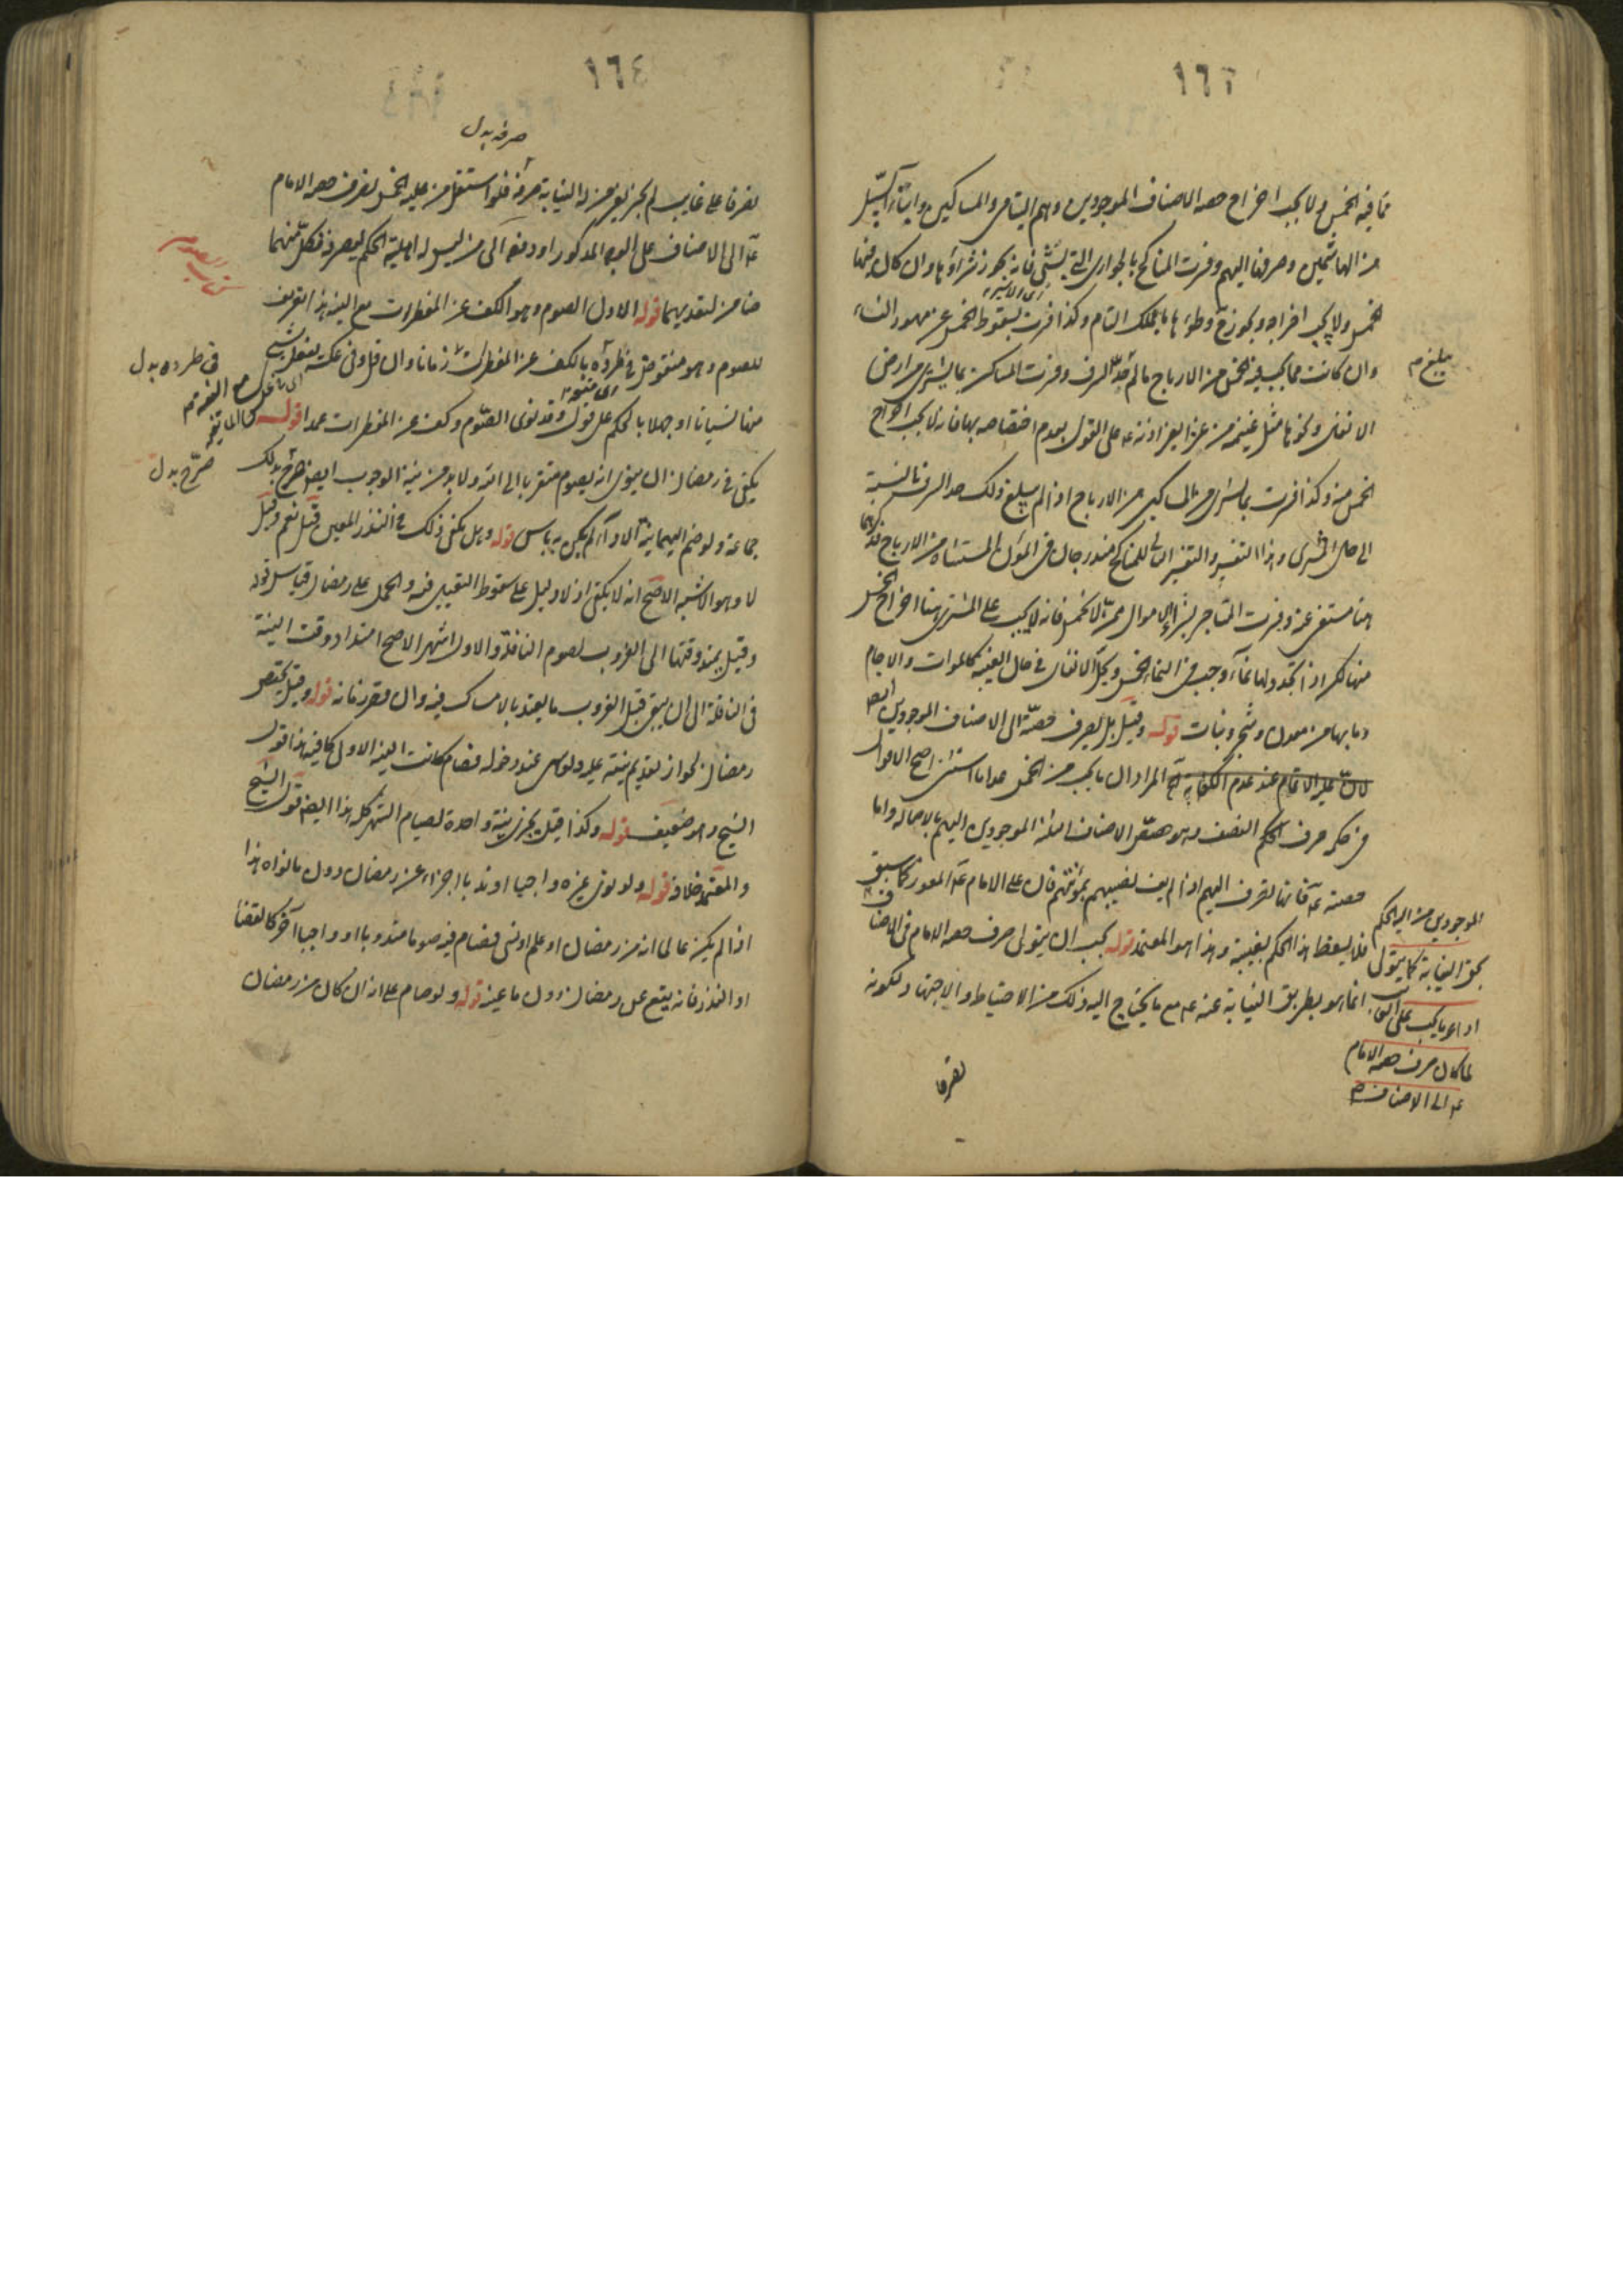 ١٦٣
مما فيه الخمس ولا يجب اخراج حصه الاصناف الموجودين وهم اليتامى والمساكين وابناء السبيل
من الهاشميين وصرفها اليهم وفسرت المناكح بالجوارى التى تسبى فانه يجوز شراؤها وان كان فيها
الخمس ولا يجب اخراجه ويجوز وطؤها بالملك التام وكذا فسرت بسقوط الخمس عن مهور النساء
وان كانت مما يجب فيه الخمس من الارباح ما لم السرف وفسرت المساكن بما يشترى من اراضى
الانفال ونحوها مثل غنيمة من غزا بغير اذنه عه على القول بعدم اختصاصه بها فانه لا يجب اخراج
الخمس منه وكذا فسرت بما يشترى من المساكن من الارباح اذا لم يبلغ ذلك حد السرف بالنسبة
الى حال المشترى وهذا التفسير والتفسير الثانى للمناكح مندرجان فى المؤن المستثناة من الارباح
هنا مستغن عنه وفسرت المتاجر بشراء الاموال ممن لا يخمس فانه لا يجب على المشترى هنا اخراج الخمس
منها لكن اذا تجدد لها نماء وجب فى النماء الخمس وبحل الانفال فى حال الغيبه كالموات والاجام
وما بها من معدن وشجر ونبات قوله وقيل بل يصرف حصته الى الاصناف الموجودين ايضا
لان عليه الاتمام عند عدم الكفاية المراد ان ما يجب من الخمس عدا ما استثنى اصح الاقوال
فى حكم صرف الحكم النصف وهو حصة الاصناف الثلثة الموجودين اليهم بالاصالة واما
حصته عه فانها تصرف اليهم اذا لم يف نصيبهم بمؤنتهم فان على الامام عه المعوز كما سبق
فلا يسقط هذا الحكم بغيبته وهذا هو المعتمد قوله يجب ان يتولى صرف حصه الامام فى الاصناف
انما هو بطريق النيابة عنه عه مع ما يحتاج اليه ذلك من الاحتياط والاجتهاد لكونه
تصرفا
الموجودين من اليه الحكم
بحق النيابة كما يتولى
اداء ما يجب على الغائب
لما كان صرف حصه الامام
عه الى الاصناف
١٦٤
صرفه بدل
تصرفا على غايب لم يجز لغير من له النيابة صرفه فلو استقل من عليه الخمس بصرف حصه الامام
عه الى الاصناف على الوجه المذكور او دفعه الى من ليس له اهلية الحكم ليصرفه فكل منهما
ضامن لتعديهما قوله الاول الصوم وهو الكف عن المفطرات مع النية هذا تعريف
للصوم وهو منقوض فى طرده بالكف عن المفطرات زمانا وان قل وفى عكسه بفعل شىء
منها نسيانا او جهلا بالحكم على قول وقد نوى الصوم وكف عن المفطرات عمدا قوله
يكفى فى رمضان ان ينوى انه يصوم متقربا الى الله ولا بد من نية الوجوب ايضا صرح بذلك
جماعة ولو ضم اليهما نية الاداء لم يكن به باس قوله وهل يكفى ذلك فى النذر المعين قيل نعم وقيل
لا وهو الاشبه الاصح انه لا يكفى اذ لا دليل على سقوط التعيين فيه والحمل على رمضان قياس قوله
وقيل يمتد وقتها الى الغروب لصوم النافلة والاول اشهر الاصح امتداد وقت النية
فى النافلة الى ان يبقى قبل الغروب ما يعتد بالامساك فيه وان قصر زمانه قوله وقيل يختص
رمضان بجواز تقديم نيته عليه ولو سهى عند دخوله فصام كانت النية الاولى كافية هذا قول
الشيخ وهو ضعيف قوله وكذا قيل يجزى نية واحدة لصيام الشهر كله هذا ايضا قول الشيخ
والمعتمد خلافه قوله ولو نوى غيره واجبا او ندبا اجزاء عن رمضان دون ما نواه هذا
اذا لم يكن عالما انه من رمضان او علم او نسى فصام فيه صوما مندوبا او واجبا آخر كالقضا
او النذر فانه يقع عن رمضان دون ما عينه قوله ولو صام على انه ان كان من رمضان
فى طرده بدل
صرح بدل